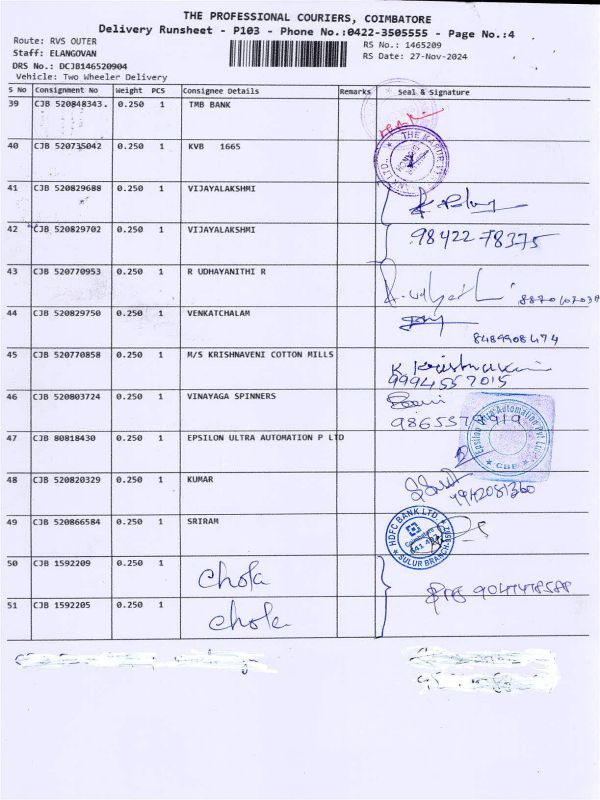 THE PROFESSIONAL COURIERS, COIMBATORE
Delivery Runsheet - P103 - Phone No.:0422-3505555 - Page No.:4
Route: RVS OUTER RS No.: 1465209
Staff: ELANGOVAN RS Date: 27-Nov-2024
DRS No.: DCJB146520904
Vehicle: Two Wheeler Delivery
S No Consignment No Weight PCS Consignee Details Remarks Seal & Signature
39 CJB 520848343. 0.250 1 TMB BANK
40 CJB 520735042 0.250 1 KVB 1665
41 CJB 520829688 0.250 1 VIJAYALAKSHMI
42 CJB 520829702 0.250 1 VIJAYALAKSHMI 98422 78375
43 CJB 520770953 0.250 1 R UDHAYANITHI R
44 CJB 520829750 0.250 1 VENKATCHALAM 8489908474
45 CJB 520770858 0.250 1 M/S KRISHNAVENI COTTON MILLS
9994557015
46 CJB 520803724 0.250 1 VINAYAGA SPINNERS
47 CJB 80818430 0.250 1 EPSILON ULTRA AUTOMATION P LTD
Epsilon Ultra Automation Pvt Ltd
CBE
48 CJB 520820329 0.250 1 KUMAR
49 CJB 520866584 0.250 1 SRIRAM
HDFC BANK LTD
SULUR BRANCH
50 CJB 1592209 0.250 1 Chola
51 CJB 1592205 0.250 1 Chola